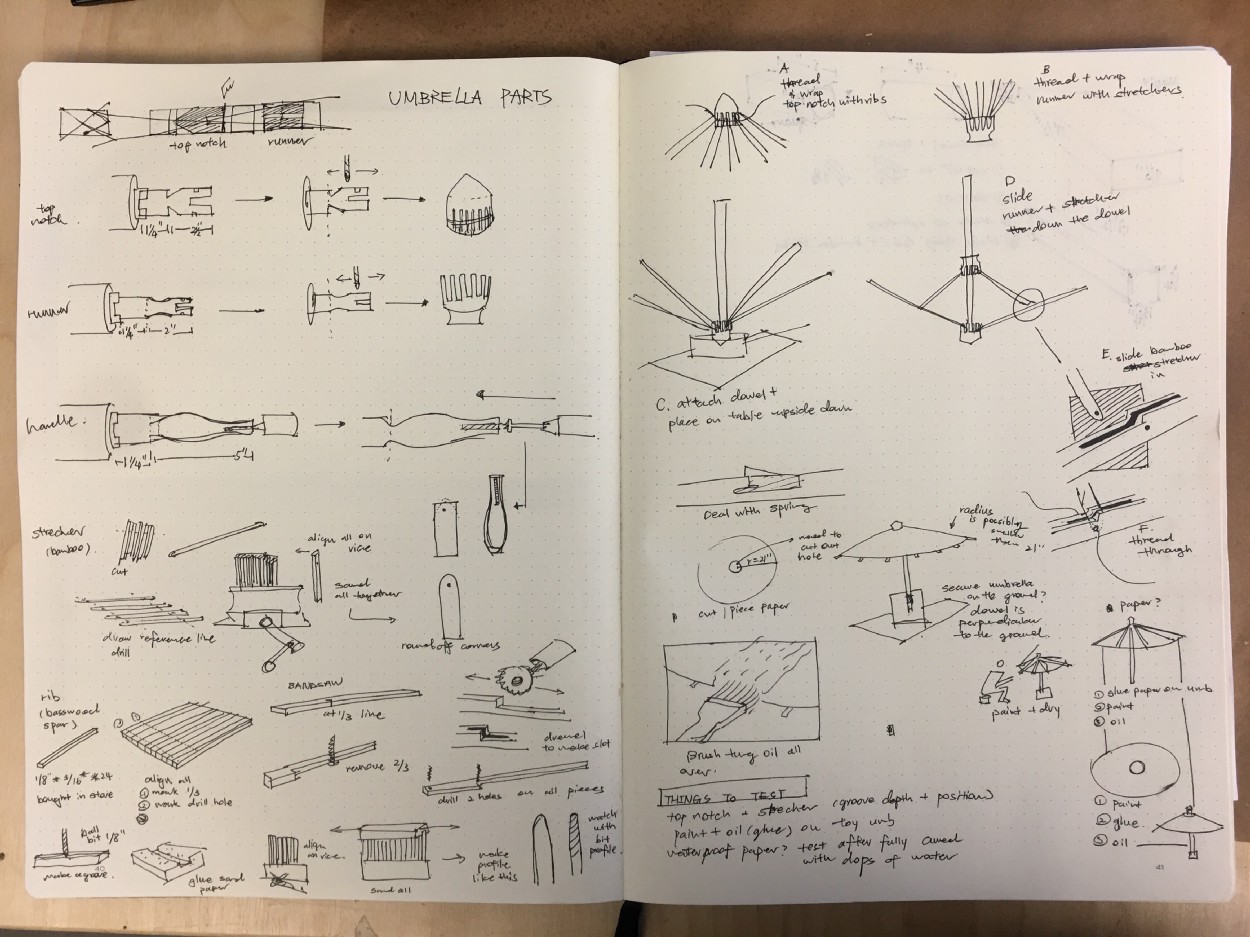 UMBRELLA PARTS
top notch
runner
top
notch.
1 1/4"
2 1/2"
runner
1 1/4"
2"
handle.
1 1/4"
5"
strecher
(bamboo).
cut
align all on
vice
sand
all together
draw reference line
drill
round off corners
rib
(basswood
spar)
1/8" * 3/16" * 24
bought in store
① ②
align all
① mark 1/3
② mark drill hole
③
BANDSAW
cut 1/3 line
remove 2/3
dremel
to make slot
drill 2 holes on all pieces
ball
bit 1/8"
make groove.
glue sand
paper
align
on vice.
sand all
make
profile
like this
match
with
bit
profile.
40
A
thread
& wrap
top notch with ribs
B
thread + wrap
runner with stretchers.
C. attach dowel +
place on table upside down
D
slide
runner + stretcher
the down the dowel
E. slide bamboo
stretcher
in
F.
thread
through
Deal with spring
need to
cut out
hole
r=21"
cut 1 piece paper
radius
is possibly
smaller
than
21"
secure umbrella
on the ground?
dowel is
perpendicular
to the ground.
paint + dry
paper?
① glue paper on umb
② paint
③ oil
① paint
② glue.
③ oil
Brush tung oil all
over.
THINGS TO TEST
top notch + strecher (groove depth + position)
paint + oil (glue) on toy umb
waterproof paper? test after fully cured
with dops of water
41